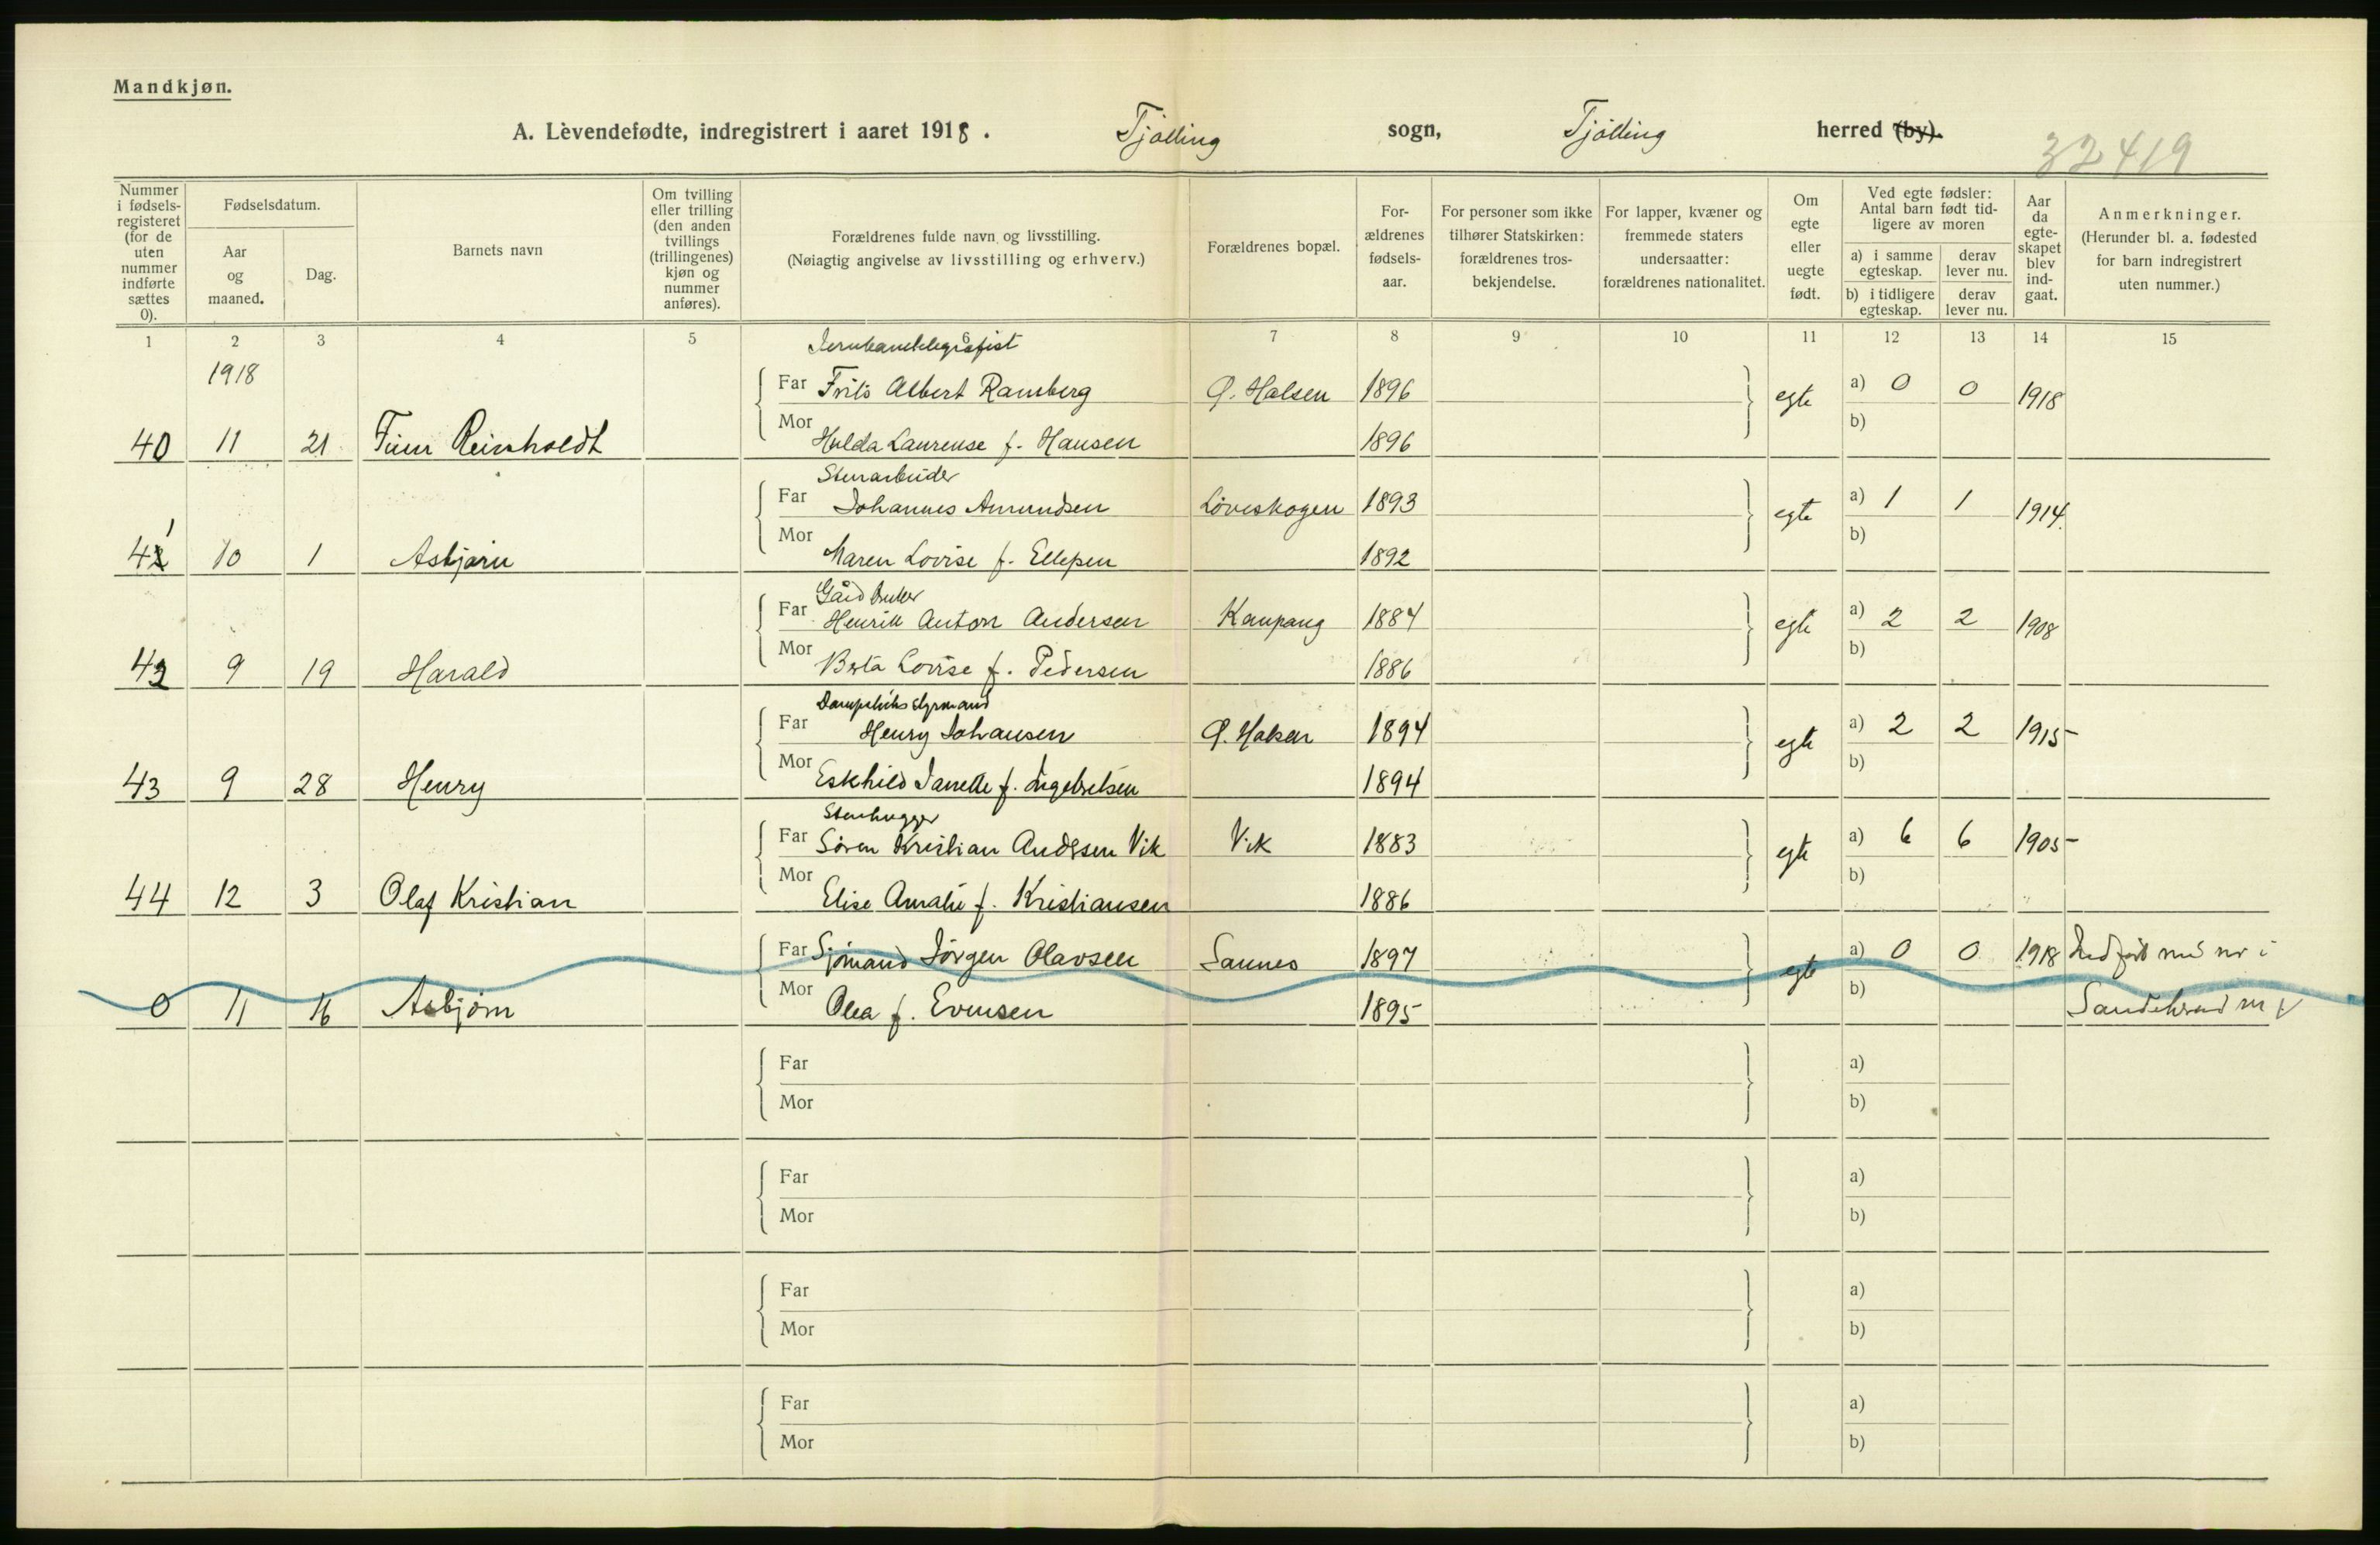 Mandkjøn.
A. Levendefødte, indregistrert i aaret 1918. Tjølling sogn, Tjølling herred (by).
32419
Nummer i fødsels-registeret (for de uten nummer indførte sættes 0).
Fødselsdatum.
Aar og maaned.
Dag.
Barnets navn
Om tvilling eller trilling (den anden tvillings (trillingenes) kjøn og nummer anføres).
Forældrenes fulde navn og livsstilling. (Nøiagtig angivelse av livsstilling og erhverv.)
Forældrenes bopæl.
For-ældrenes fødsels-aar.
For personer som ikke tilhører Statskirken: forældrenes tros-bekjendelse.
For lapper, kvæner og fremmede staters undersaatter: forældrenes nationalitet.
Om egte eller uegte født.
Ved egte fødsler: Antal barn født tid-ligere av moren
a) i samme egteskap.
derav lever nu.
b) i tidligere egteskap.
derav lever nu.
Aar da egte-skapet blev ind-gaat.
Anmerkninger. (Herunder bl. a. fødested for barn indregistrert uten nummer.)
1 2 3 4 5 6 7 8 9 10 11 12 13 14 15
1918
Jernbanetelegrafist
Far Frits Albert Ramberg Ø. Halsen 1896 egte a) 0 0 1918
Mor Hulda Laurense f. Hansen 1896 b)
40 11 21 Finn Reinholdt
Stenarbeider
Far Johannes Amundsen Løveskogen 1893 egte a) 1 1 1914
Mor Maren Lovise f. Ellefsen 1892 b)
41 10 1 Asbjørn
Gårdbruker
Far Henrik Anton Andersen Kaupang 1884 egte a) 2 2 1908
Mor Berta Lovise f. Pedersen 1886 b)
42 9 19 Harald
Dampskibs styrmand
Far Henry Johansen Ø. Halsen 1894 egte a) 2 2 1915
Mor Eskhild Janette f. Ingebretsen 1894 b)
43 9 28 Henry
Stenhugger
Far Søren Kristian Andersen Vik Vik 1883 egte a) 6 6 1905
Mor Elise Amalie f. Kristiansen 1886 b)
44 12 3 Olaf Kristian
Far Sjømand Jørgen Olavsen Sannes 1897 egte a) 0 0 1918 Indført med nr i
Mor Olea f. Evensen 1895 b) Sandeherred
0 11 16 Asbjørn
Far a)
Mor b)
Far a)
Mor b)
Far a)
Mor b)
Far a)
Mor b)